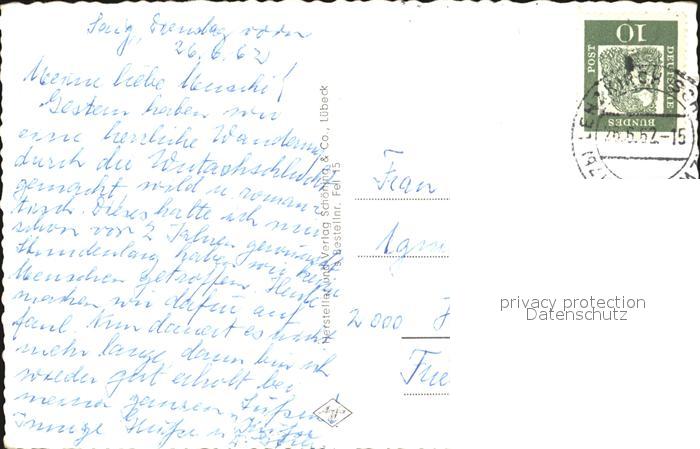 Saig, Dienstag
26.6.62
Meine liebe Muschi!
Gestern haben wir
eine herrliche Wanderung
durch die Wutachschlucht
gemacht wild u. roman-
tisch. Dieses hatte ich mir
schon vor 2 Jahren gewünscht
Stundenlang haben wir keine
Menschen getroffen. Heute
machen wir dafür auf
faul. Nun dauert es nicht
mehr lange, dann bin ich
wieder gut erholt bei
meiner ganzen
Innige Grüße u.
Hersteller und Verlag Schöning & Co., Lübeck
Bestellnr. Fel 15
Frau
Agnes
2000 H
DEUTSCHE
BUNDES
POST
10
26.6.62.-15
privacy protection
Datenschutz